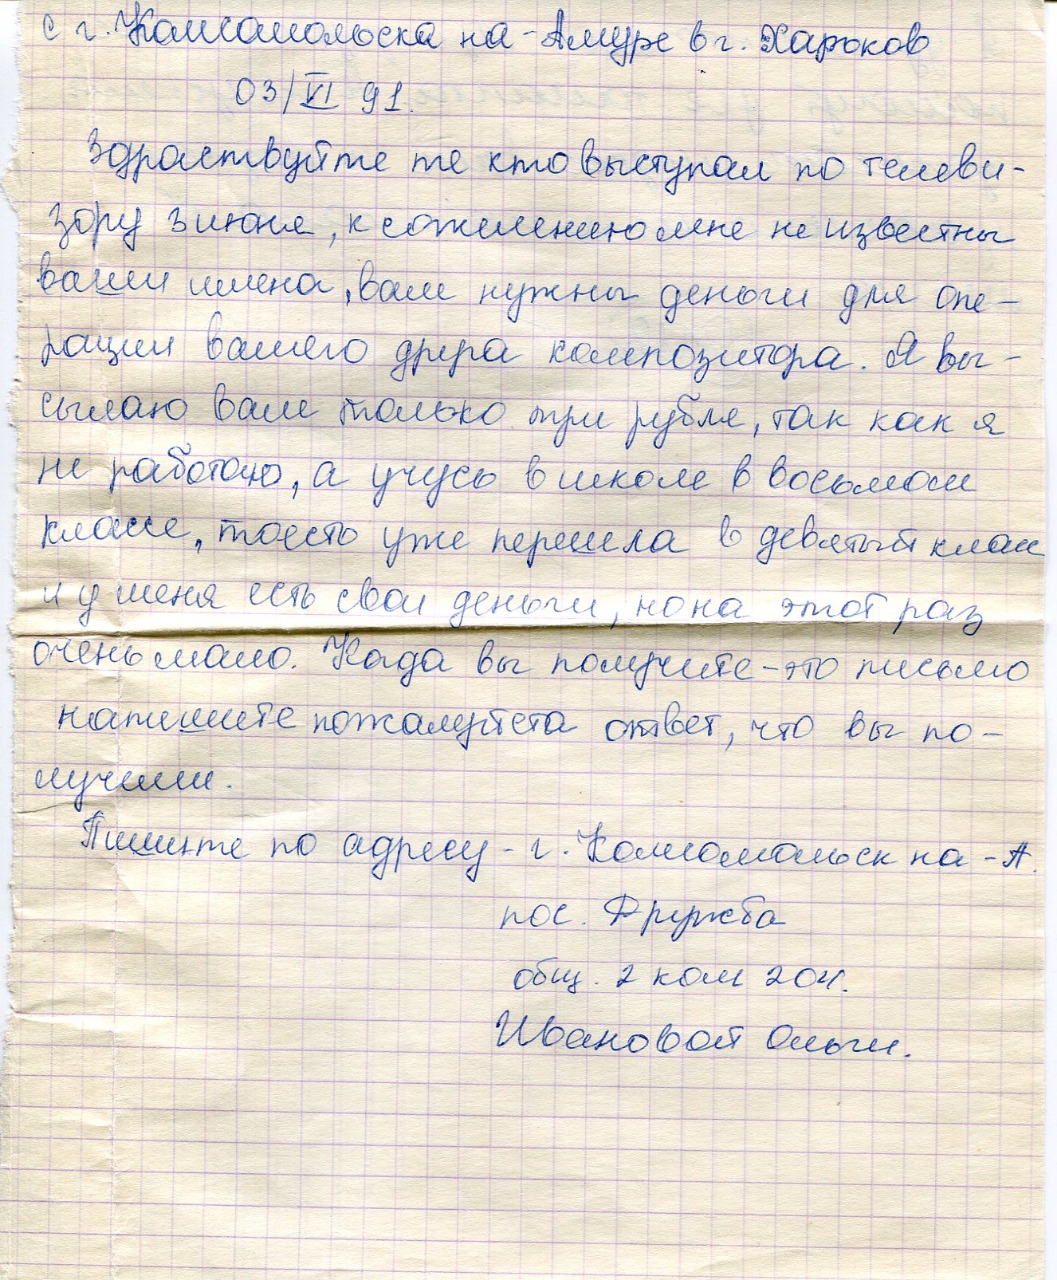 с г. Комсомольска на-Амуре в г. Харьков
03/VI 91.
Здраствуйте те кто выступал по телеви-
зору 3 июня, к сожелению мне не известны
ваши имена, вам нужны деньги для опе-
рации вашего друга композитора. Я вы-
сылаю вам только три рубля, так как я
не работаю, а учусь в школе в восьмом
классе, тоесть уже перешла в девятый класс
и у меня есть свои деньги, но на этот раз
очень мало. Када вы получите-это письмо
напишите пожалуйста ответ, что вы по-
лучили.
Пишите по адресу - г. Комсомольск на-А.
пос. Дружба
общ. 2 ком 204.
Ивановой Ольги.